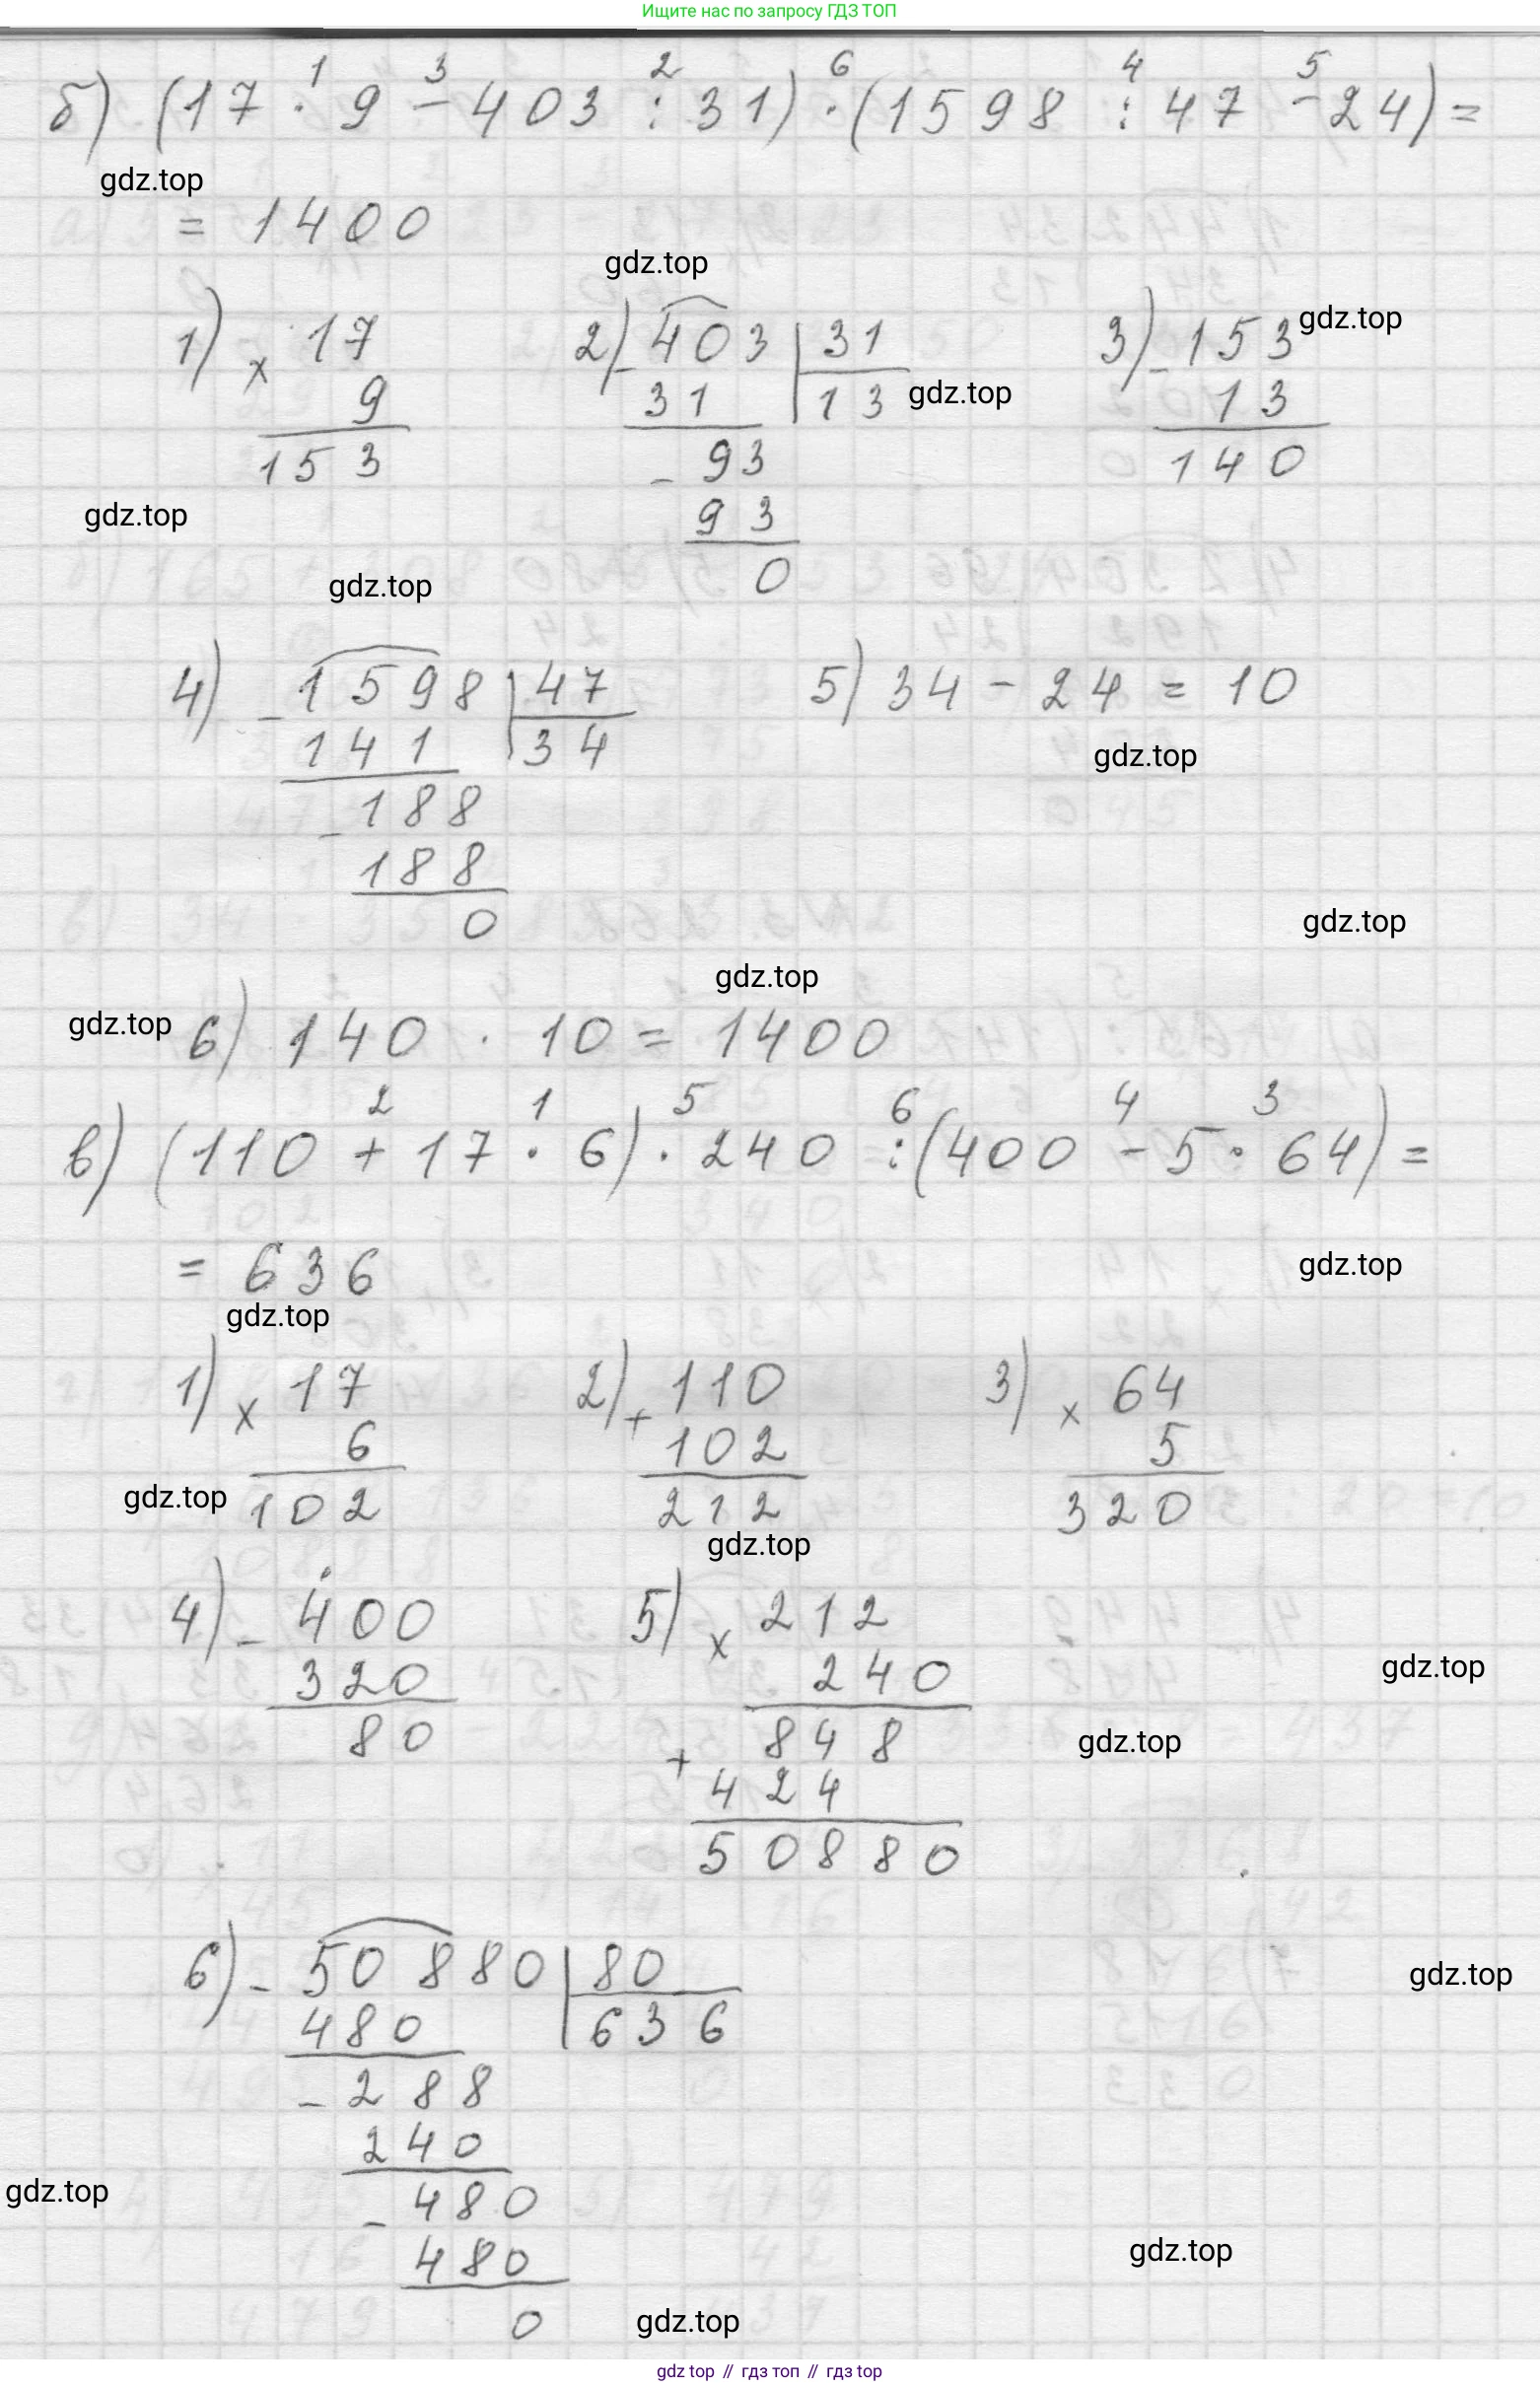 Ищите нас по запросу ГДЗ ТОП
б) (17 · 9 − 403 : 31) · (1598 : 47 − 24) =
1 3 2 6 4 5
gdz.top
= 1400
gdz.top
1) × 17
9
153
2) − 403 | 31
31 | 13
− 93
93
0
3) − 153
13
140
gdz.top
gdz.top
gdz.top
gdz.top
4) − 1598 | 47
141 | 34
− 188
188
0
5) 34 − 24 = 10
gdz.top
gdz.top
gdz.top
gdz.top
6) 140 · 10 = 1400
2 1 5 6 4 3
в) (110 + 17 · 6) · 240 : (400 − 5 · 64) =
= 636
gdz.top
gdz.top
1) × 17
6
102
2) + 110
102
212
3) × 64
5
320
gdz.top
gdz.top
4) − 400
320
80
5) × 212
240
848
+
424
50880
gdz.top
gdz.top
6) − 50880 | 80
480 | 636
− 288
240
− 480
480
0
gdz.top
gdz.top
gdz.top
gdz.top
gdz top // гдз топ // гдз top